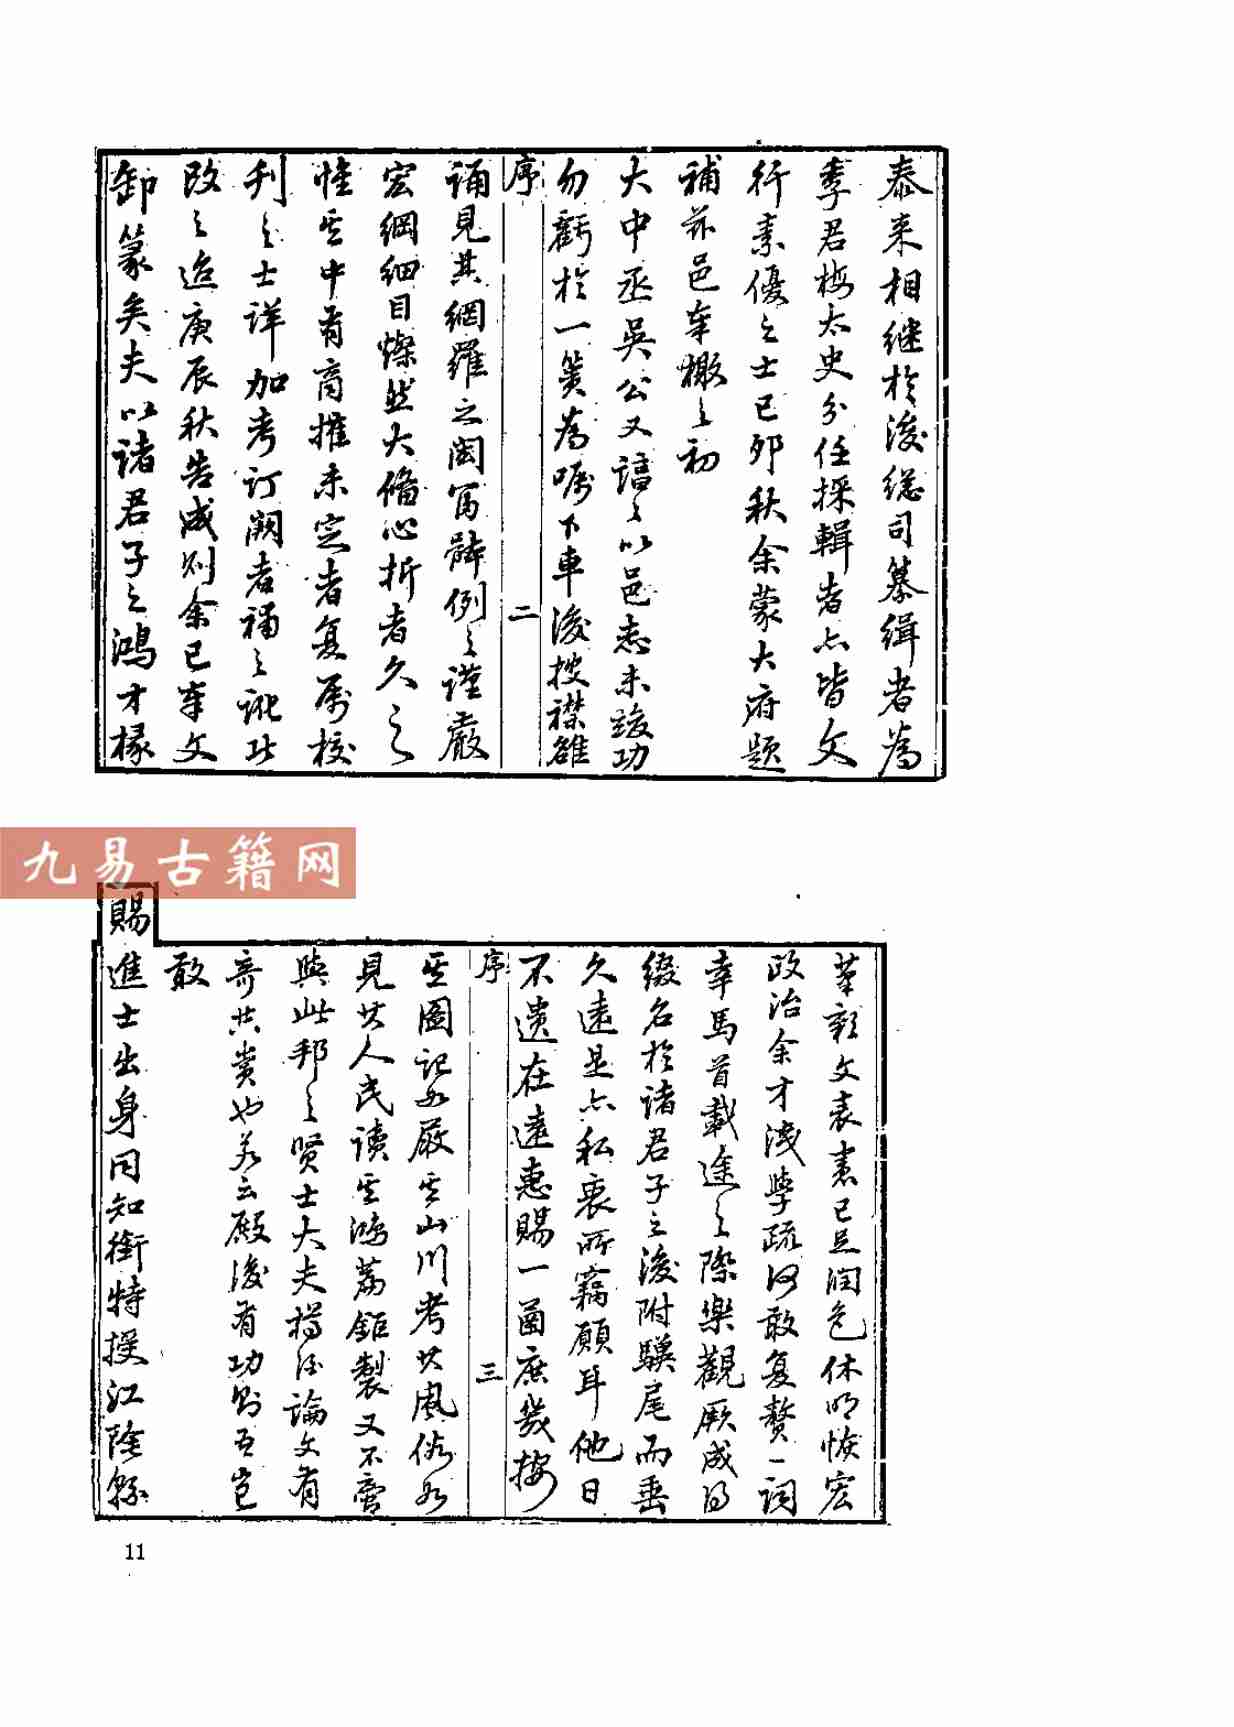 泰來相继於後總司纂緝者為
季君梅太史分任採輯者亦皆文
行素優之士己卯秋余蒙大府題
補茲邑奉檄之初
大中丞吳公又諄諄以邑志未竣功
勿虧於一簣為囑下車後披襟雒
誦見其網羅之閎富體例之謹嚴
宏綱細目燦然大備心折者久之
惟其中有商搉未定者复属校
刊之士详加考订阙者補之訛者
改之迨庚辰秋告成则余已奉文
卸篆矣夫以諸君子之鴻才椽
筆彰文表憲已足润色休明恢宏
政治余才淺學疏何敢复贅一词
幸馬首載途之際樂觀厥成得
綴名於諸君子之後附驥尾而垂
久遠是亦私衷所竊願耳他日
不遺在遠惠賜一函庶幾按
其圖記如厳其山川考其風俗如
見其人民读其鴻篇鉅製又不啻
與此邦之贤士大夫樽酒論文有
奇共賞也若云殿後有功则吾豈
敢
賜進士出身同知銜特授江陰縣
序
二
序
三
九易古籍网
11